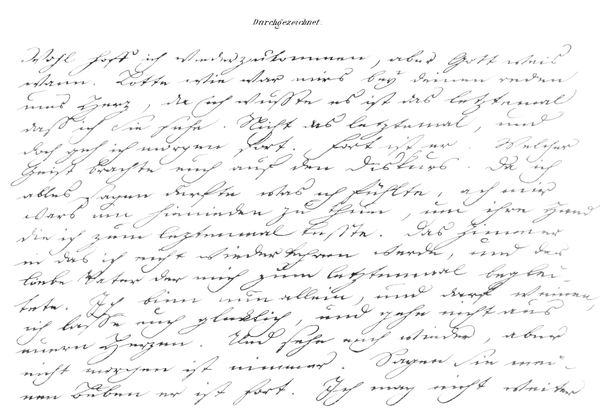 Durchgezeichnet.
Wohl hoff ich wiederzukommen, aber Gott weis
wann. Lotte wie war mirs bey deinen reden
ums Herz, da ich wusste es ist das letztemal
dass ich Sie sehe. Nicht das letztemal, und
doch geh ich morgen fort. Fort ist er. Welcher
Geist brachte euch auf den Diskurs. Da ich
alles sagen durfte was ich fühlte, ach mir
wars um hienieden zu thun, um ihre Hand
die ich zum letztenmal küsste. Das Zimmer
in das ich nicht wiederkehren werde, und der
liebe Vater der mich zum letztenmal beglei-
tete. Ich binn nun allein, und darf weinen,
ich lasse euch glücklich, und gehe nicht aus
euern Herzen. Und sehe euch wieder, aber
nicht morgen ist nimmer. Sagen Sie mei-
nen Buben er ist fort. Ich mag nicht weiter